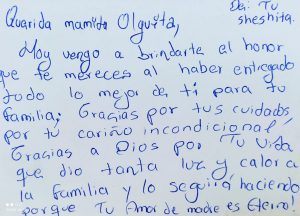 De: Tu
sheshita.
Querida mamiita Olguita,
Hoy vengo a brindarte el honor
que te mereces al haber entregado
todo lo mejor de ti para tu
familia, Gracias por tus cuidados,
por tu cariño incondicional,
Gracias a Dios por Tu vida
que dio tanta luz y calor a
la familia y lo seguirá haciendo
porque Tu Amor de madre es Eterno!